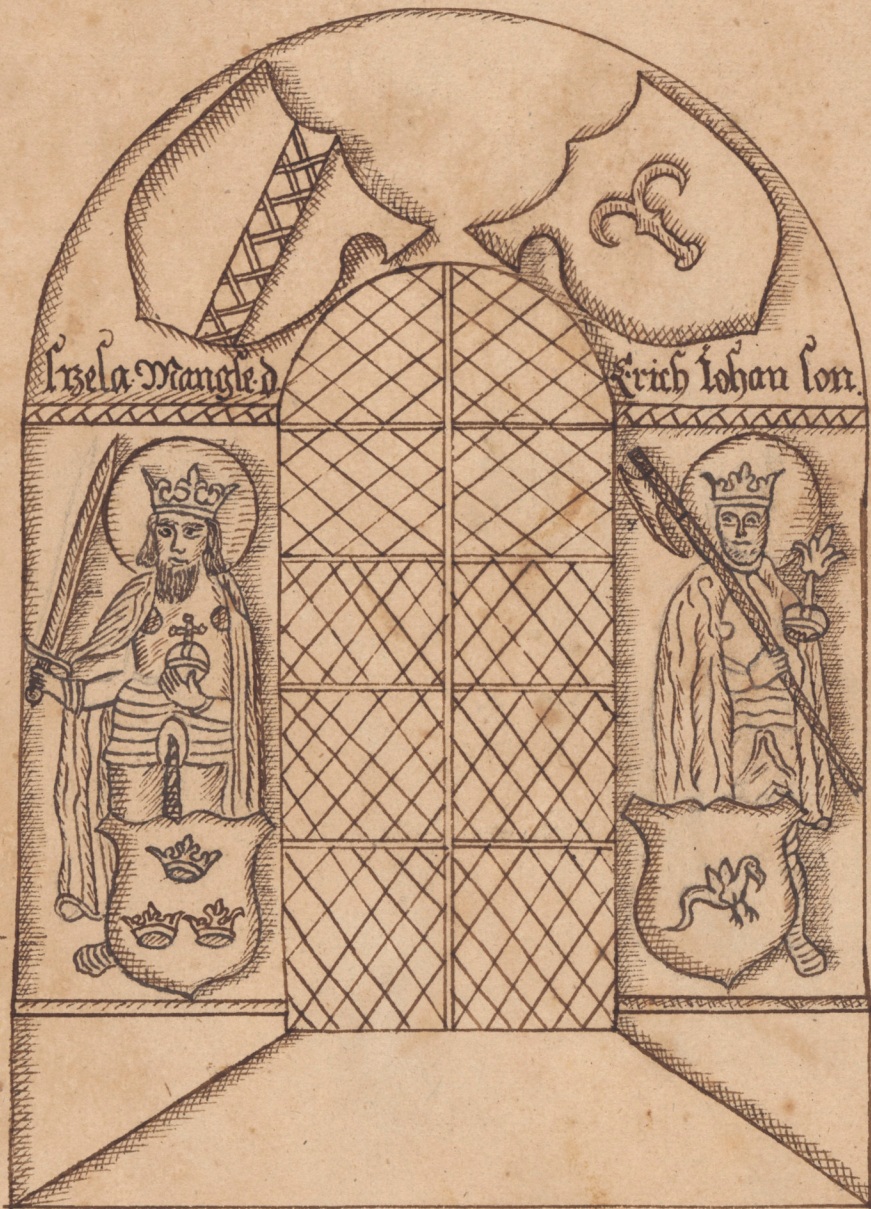 Srzela Mangls. d
Erich Iohan son.